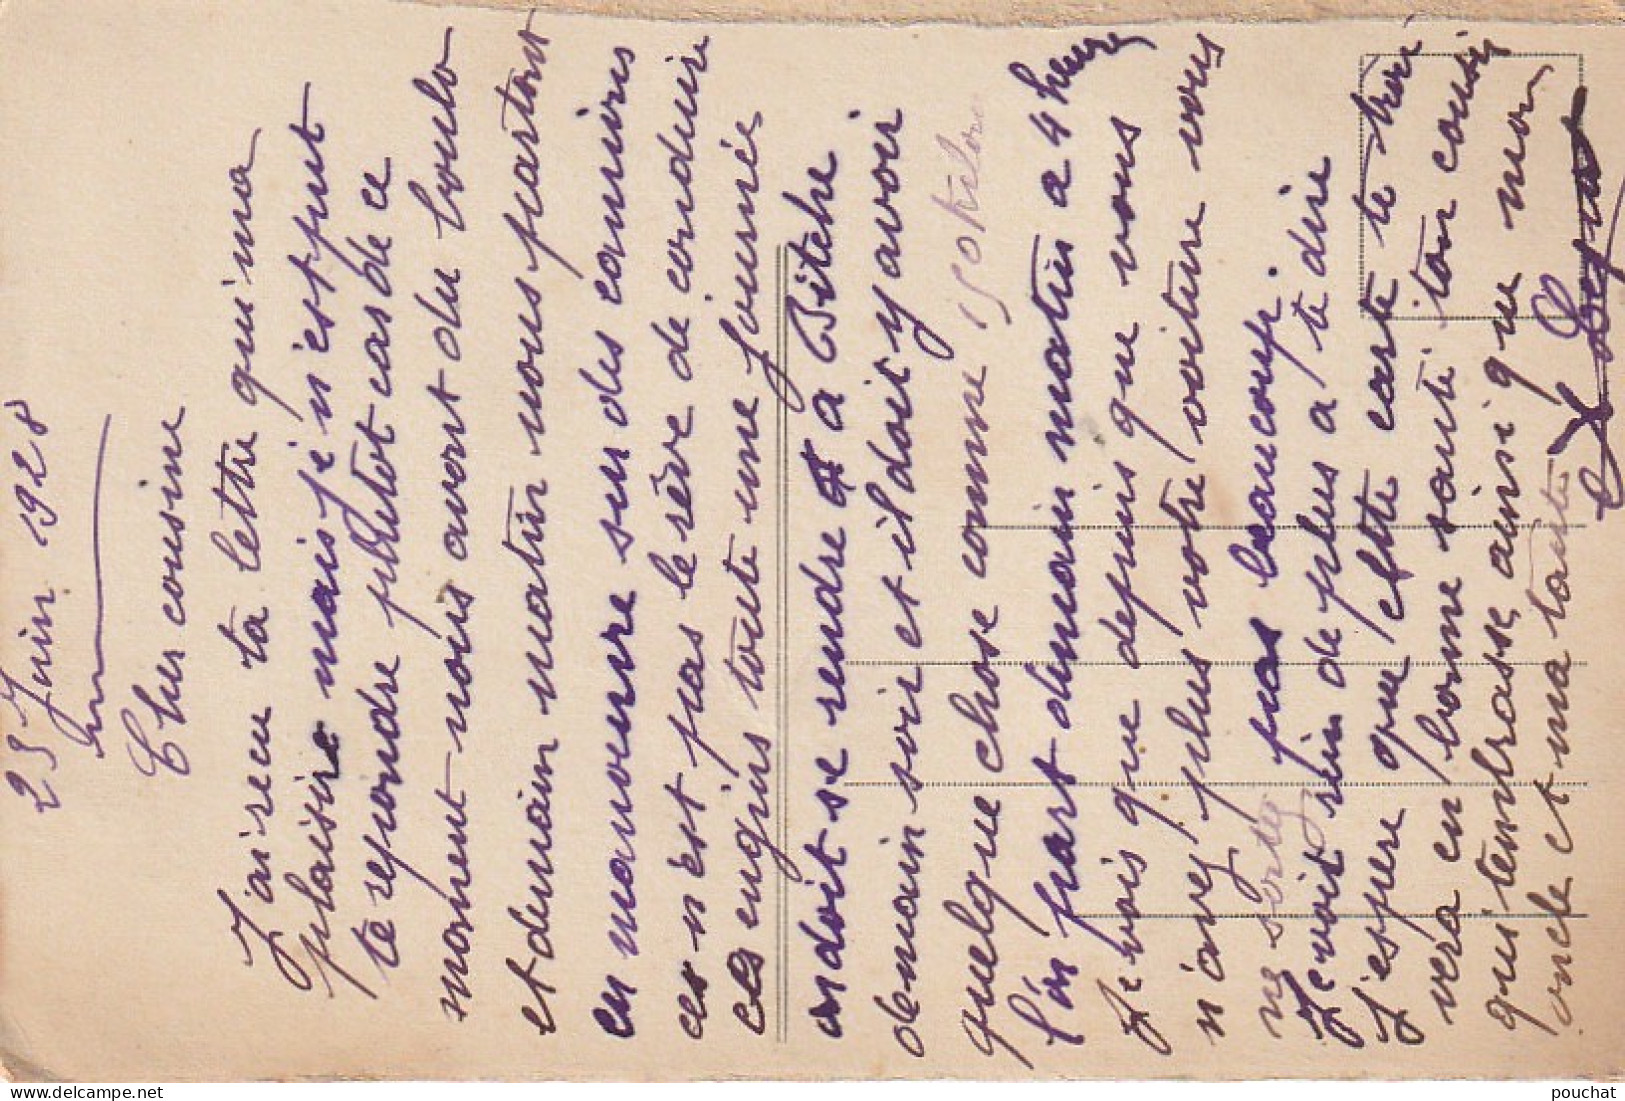 23 Juin 1928
Cher cousine
J'ai reçu ta lettre qui ma
plaisire mais je n'est put
te repondre plutot cas de ce
moment nous avont du boulo
et demain matin nous partont
en manouvre su des camions
ces n'est pas le rêve de conduire
ces engins toute une journée
on doit se rendre a Bitche
demain soir et il doit y avoir
quelque chose comme 150 kilom
l'on part demain matin a 4 heures
Je vois que depuis que vous
n'avez plus votre voiture vous
ne sortez pas beaucoup.
Je voit rien de plus a te dire
J'espere que cette carte te trou
vera en bonne santé ton cousin
qui tembrasse, ainsi que mon
oncle et ma tante
pouchat